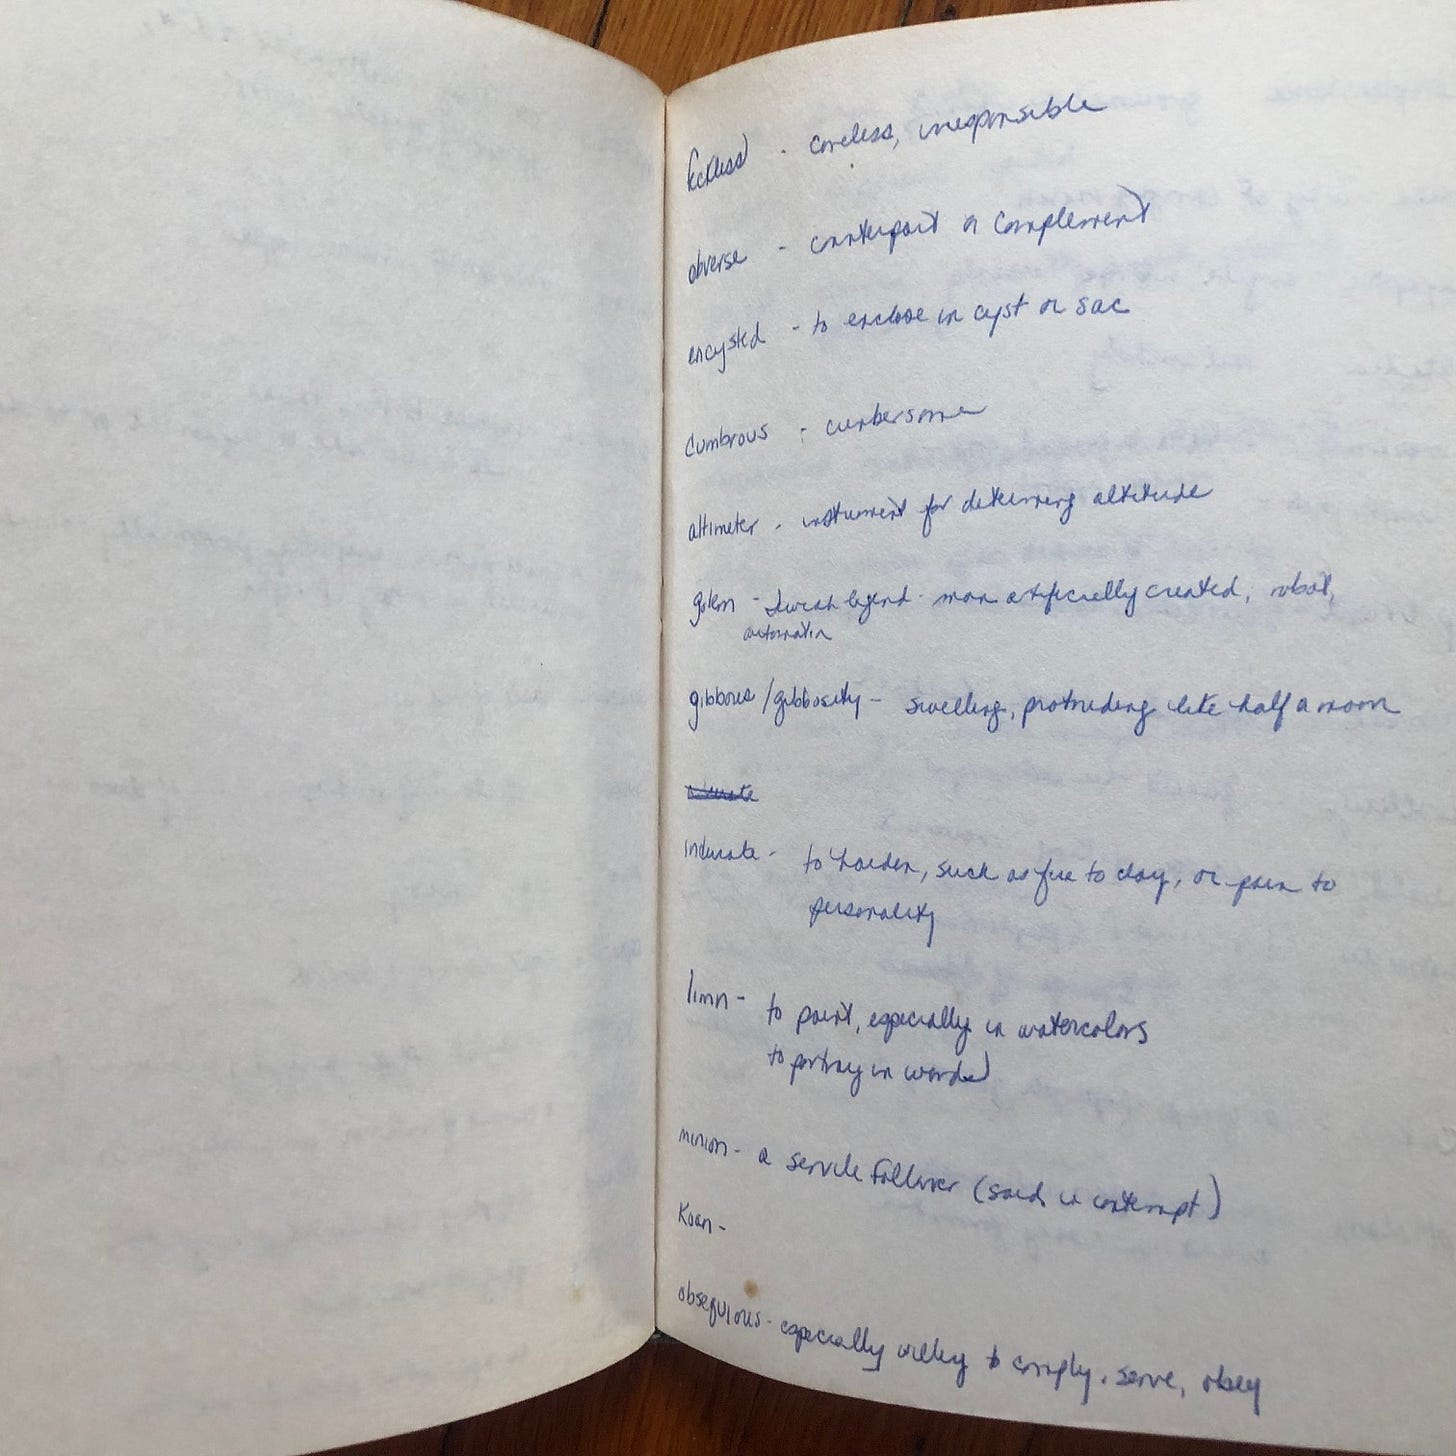 feckless - careless, irresponsible
obverse - counterpart or complement
encysted - to enclose in cyst or sac
cumbrous - cumbersome
altimeter - instrument for determing altitude
golem - Jewish legend - man artificially created, robot,
automatin
gibbous/gibbosity - swelling, protruding like half a moon
indurate - to harden, such as fire to clay, or pain to
personality
limn - to paint, especially in watercolors
to portray in words
minion - a servile follower (said in contempt)
Koan -
obsequious - especially willing to comply, serve, obey